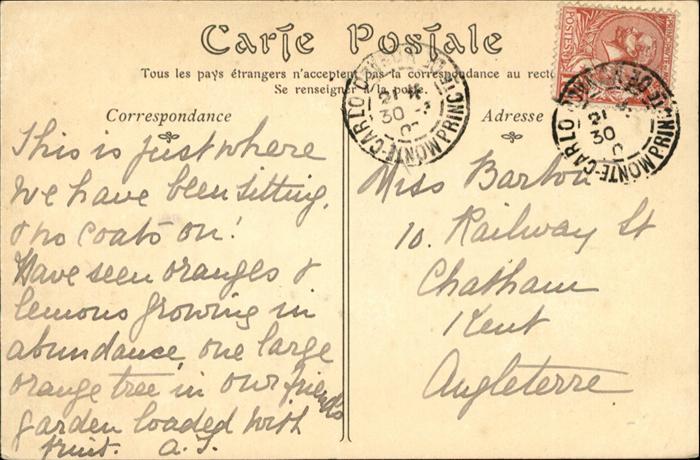 Carte Postale
Tous les pays étrangers n'acceptent pas la correspondance au recto
Se renseigner à la poste.
Correspondance
Adresse
This is just where
we have been sitting,
& no coats on!
Have seen oranges &
lemons growing in
abundance, one large
orange tree in our friends
garden loaded with
fruit. A.J.
Miss Barton
10. Railway St
Chatham
Kent
Angleterre
MONTE-CARLO
PRINCIPTE DE MONACO
21
30
MONTE-CARLO
21
30
POSTES